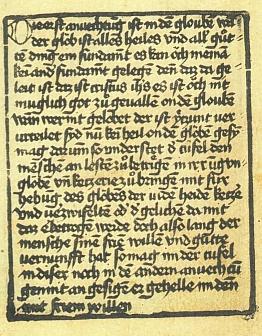 Die erst anuechtug ist in dē gloubē
der glob ist alles heiles vnd all gūt
te ding ein fundamt es kan och niemā
kei and fundamt gelegē den daz da ge
leit ist daz ist cristus ihs es ist och nit
muglich got zu geuallē on dē gloubē
wan wer nit gelobet der ist ver
urteilet nū kā heil on dē globē gesy
mag darum so vnderstet d tüfel den
mēschē an lestē zu betrigē in
globē vn ketzerie zu bringē mit für
hebug des globēs der iudē heidē ketze
vnd v'zwifelte od d geliche da mit
daz er betrogē werde doch also lang der
mensche sine friē willē vnd gātze
vernunfft hat so mag in der tüfel
in diser noch in dē andern anuechtū
gen nit an gesigē er gehelle in den
mit friem willen